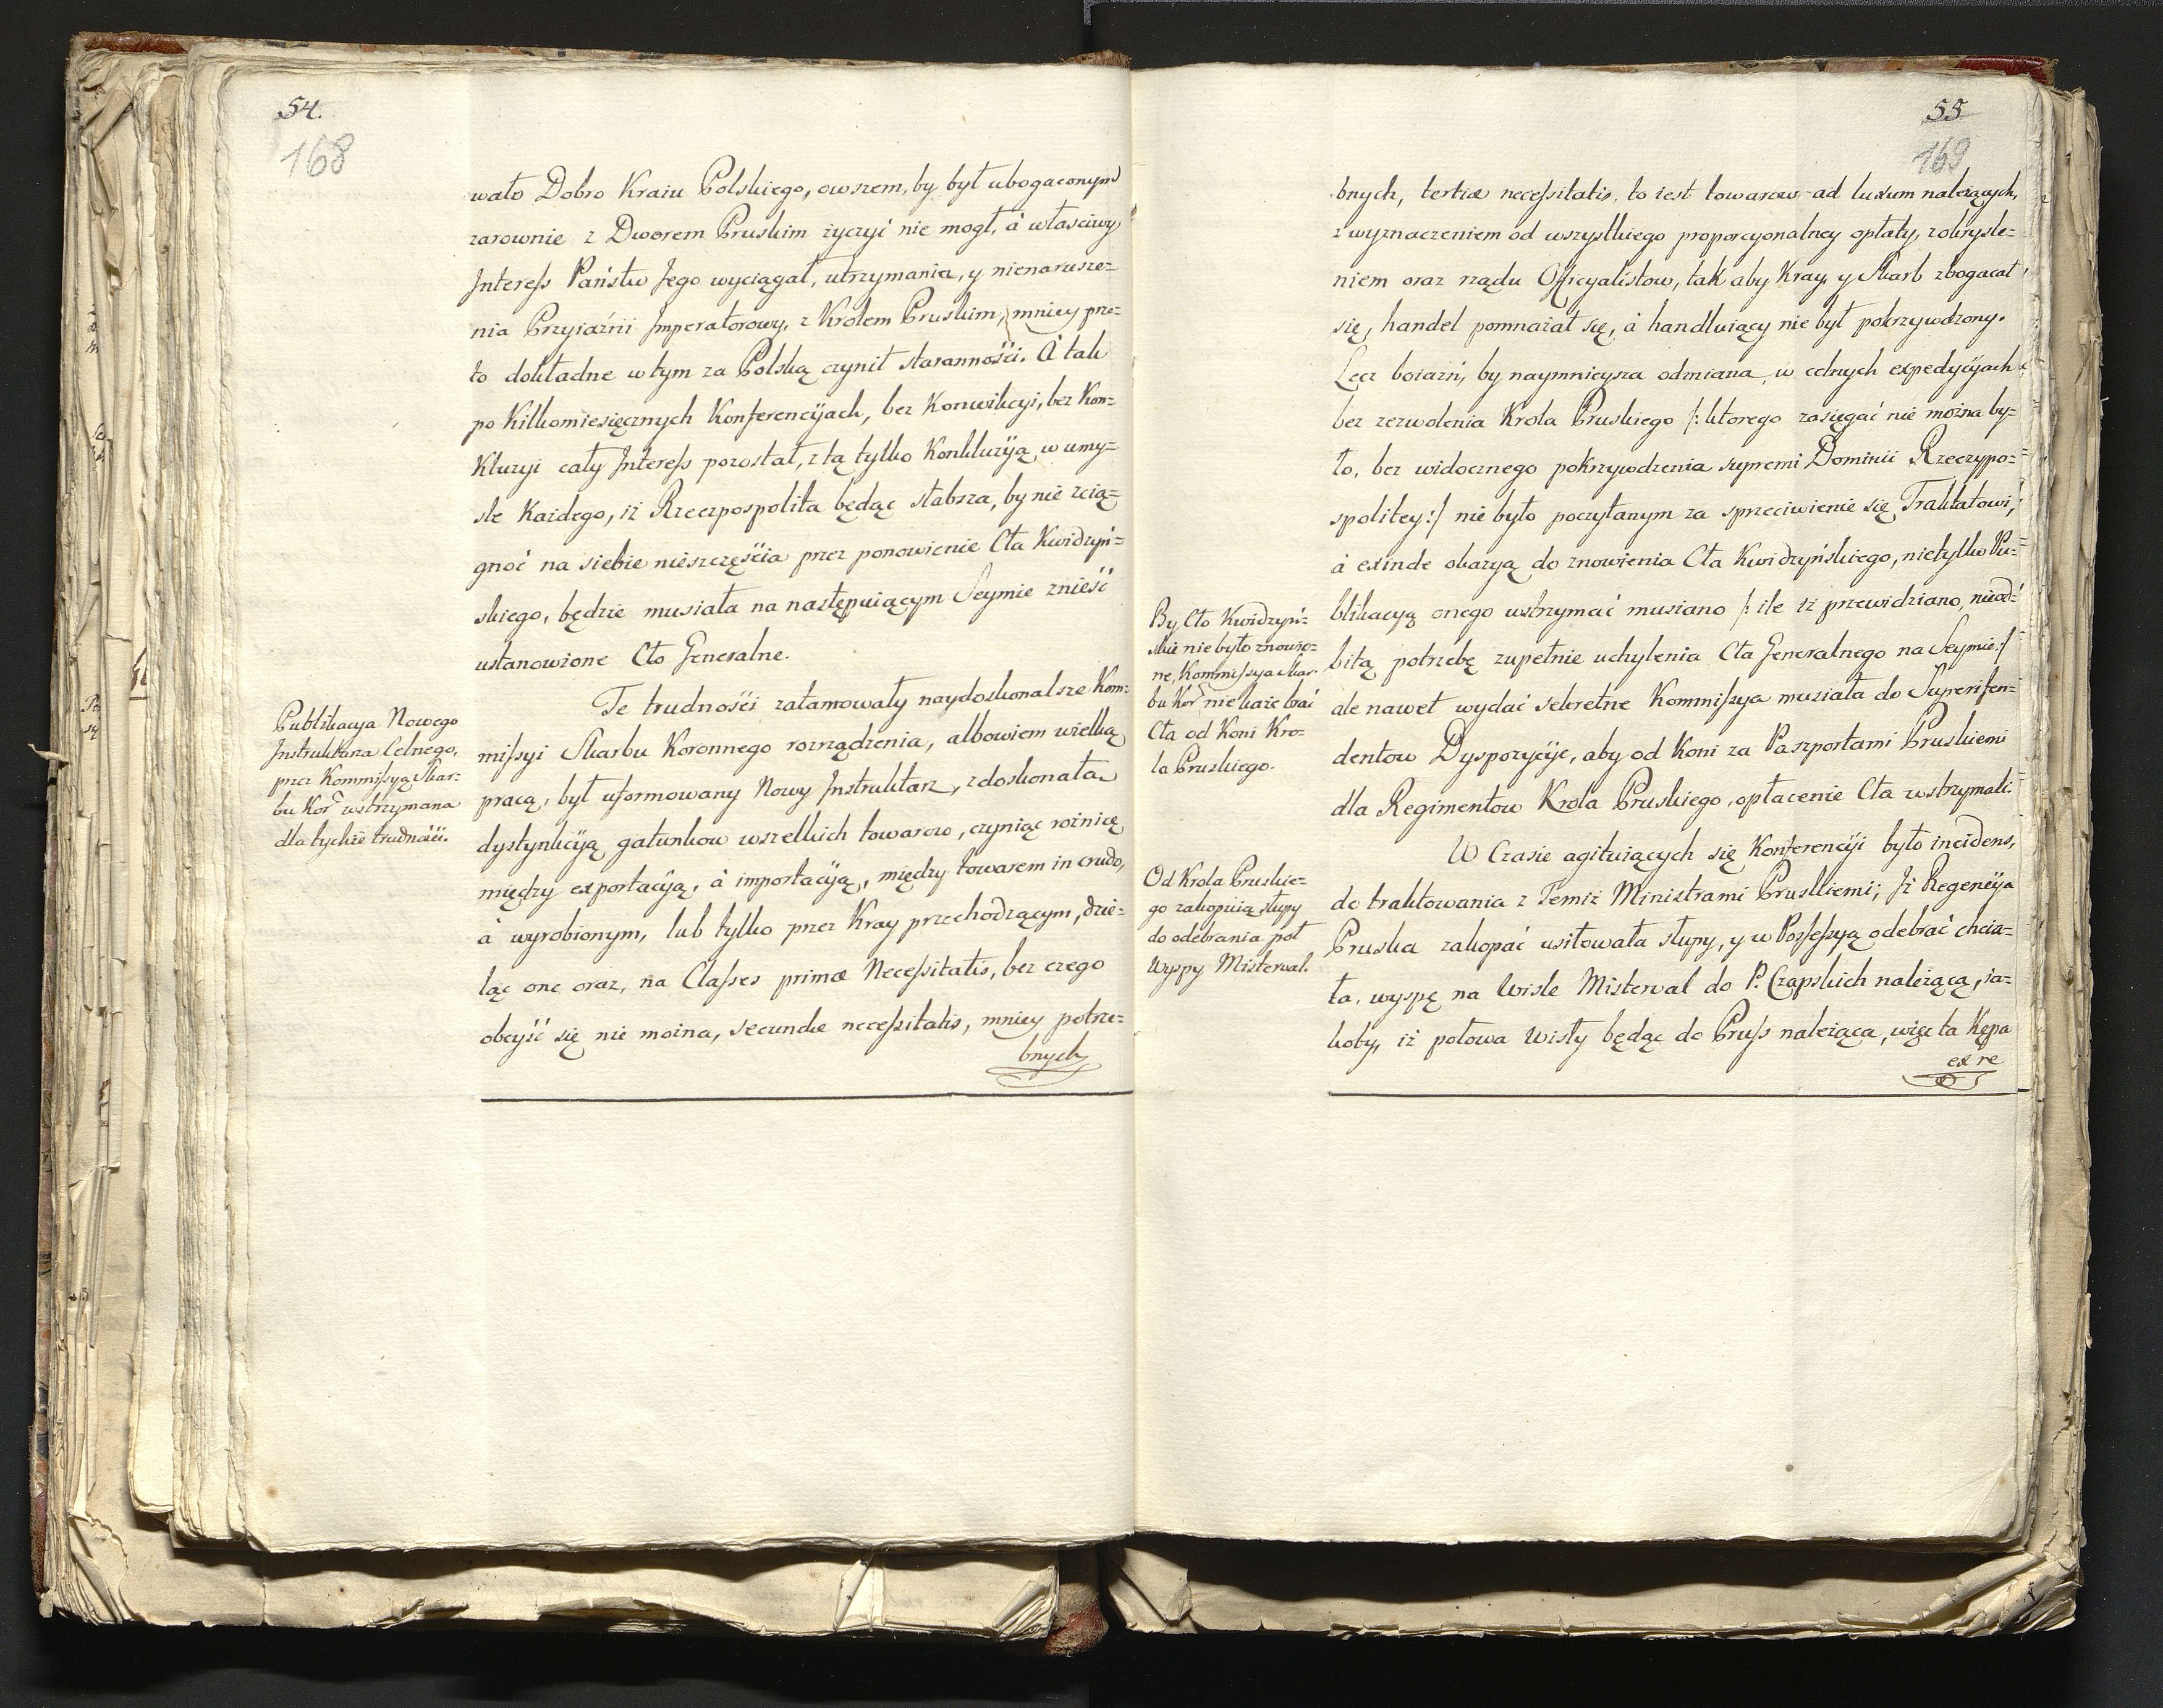 54.
168
wało Dobro Kraiu Polskiego, owszem, by był ubogaconym
zarownie z Dworem Pruskim życzyć nie mogł, á własciwy
Interess Państw Jego wyciągał, utrzymania, y nienarusze=
nia Przyiaźni Imperatorowy, z Krolem Pruskim, mniey prze=
to dokładne w tym za Polską czynił starannośći. A tak
po Kilkomiesięcznych Konferencyach, bez Konwikcyi, bez Kon=
Kluzyi cały Interess pozostał, z tą tylko Konkluzyą w umy=
sle Każdego, iż Rzeczpospolita będąc słabsza, by nie scią=
gnoć na siebie nieszczęścia przez ponowienie Cła Kwidzyń=
skiego, będzie musiała na następuiącym Seymie znieść
ustanowione Cło Generalne.
Publikacya Nowego
Instruktarza Celnego,
przez Kommissyą Skar=
bu Kor. wstrzymana
dla tychże trudnośći.
Te trudnośći załamowały naydoskonalsze Kom=
missyi Skarbu Koronnego rozrządzenia, albowiem wielką
pracą, był uformowany Nowy Instruktarz, z doskonałą
dystynkcyą gatunkow wszelkich towarow, czyniąc rożnicę
między exportacyą, á importacyą, między towarem in crudo,
á wyrobionym, lub tylko przez Kray przechodzącym, dzie=
ląc one oraz, na Classes primæ Necessitatis, bez czego
obeyść się nie można, secundæ necessitatis, mniey potrze=
bnych
55
169
bnych, tertiæ necessitatis, to iest towarow ad luxum należących,
z wyznaczeniem od wszystkiego proporcyonalney opłaty, z okrysle=
niem oraz rządu Officyalistow, tak aby Kray, y Skarb zbogacał
się, handel pomnażał się, á handluiący nie był pokrzywdzony.
Lecz boiazń, by naymnieysza odmiana, w celnych expedycyach
bez zezwolenia Krola Pruskiego /: ktorego zasięgać nie można by=
ło, bez widocznego pokrzywdzenia supremi Dominii Rzeczypo=
spolitey :/ nie było poczytanym za sprzeciwienie się Traktatowi,
á exinde okazyą do znowienia Cła Kwidzyńskiego, nietylko Pu=
By Cło Kwidzyń=
skie nie było znowio=
ne, Kommissya Skar=
bu Kor. nie każe brać
Cła od Koni Kro=
la Pruskiego.
blikacyą onego wstrzymać musiano /: ile iż przewidziano, nieod=
bitą potrzebę zupełnie uchylenia Cła Generalnego na Seymie :/
ale nawet wydać sekretne Kommissya musiała do Superinten=
dentow Dyspozycye, aby od Koni za Paszportami Pruskiemi
dla Regimentow Krola Pruskiego, opłacenie Cła wstrzymali.
W Czasie agituiących się Konferencyi było incidens,
Od Krola Pruskie=
go zakopuią słupy
do odebrania poł
Wyspy Misterwal.
do traktowania z Temiż Ministrami Pruskiemi; Iż Regencya
Pruska zakopać usiłowała słupy, y w Possessyą odebrać chcia=
ła, wyspę na Wisle Misterwal do P. Czapskich należącą, ia=
koby, iż połowa Wisły będąc do Pruss należąca, więc ta Kępa
ex re